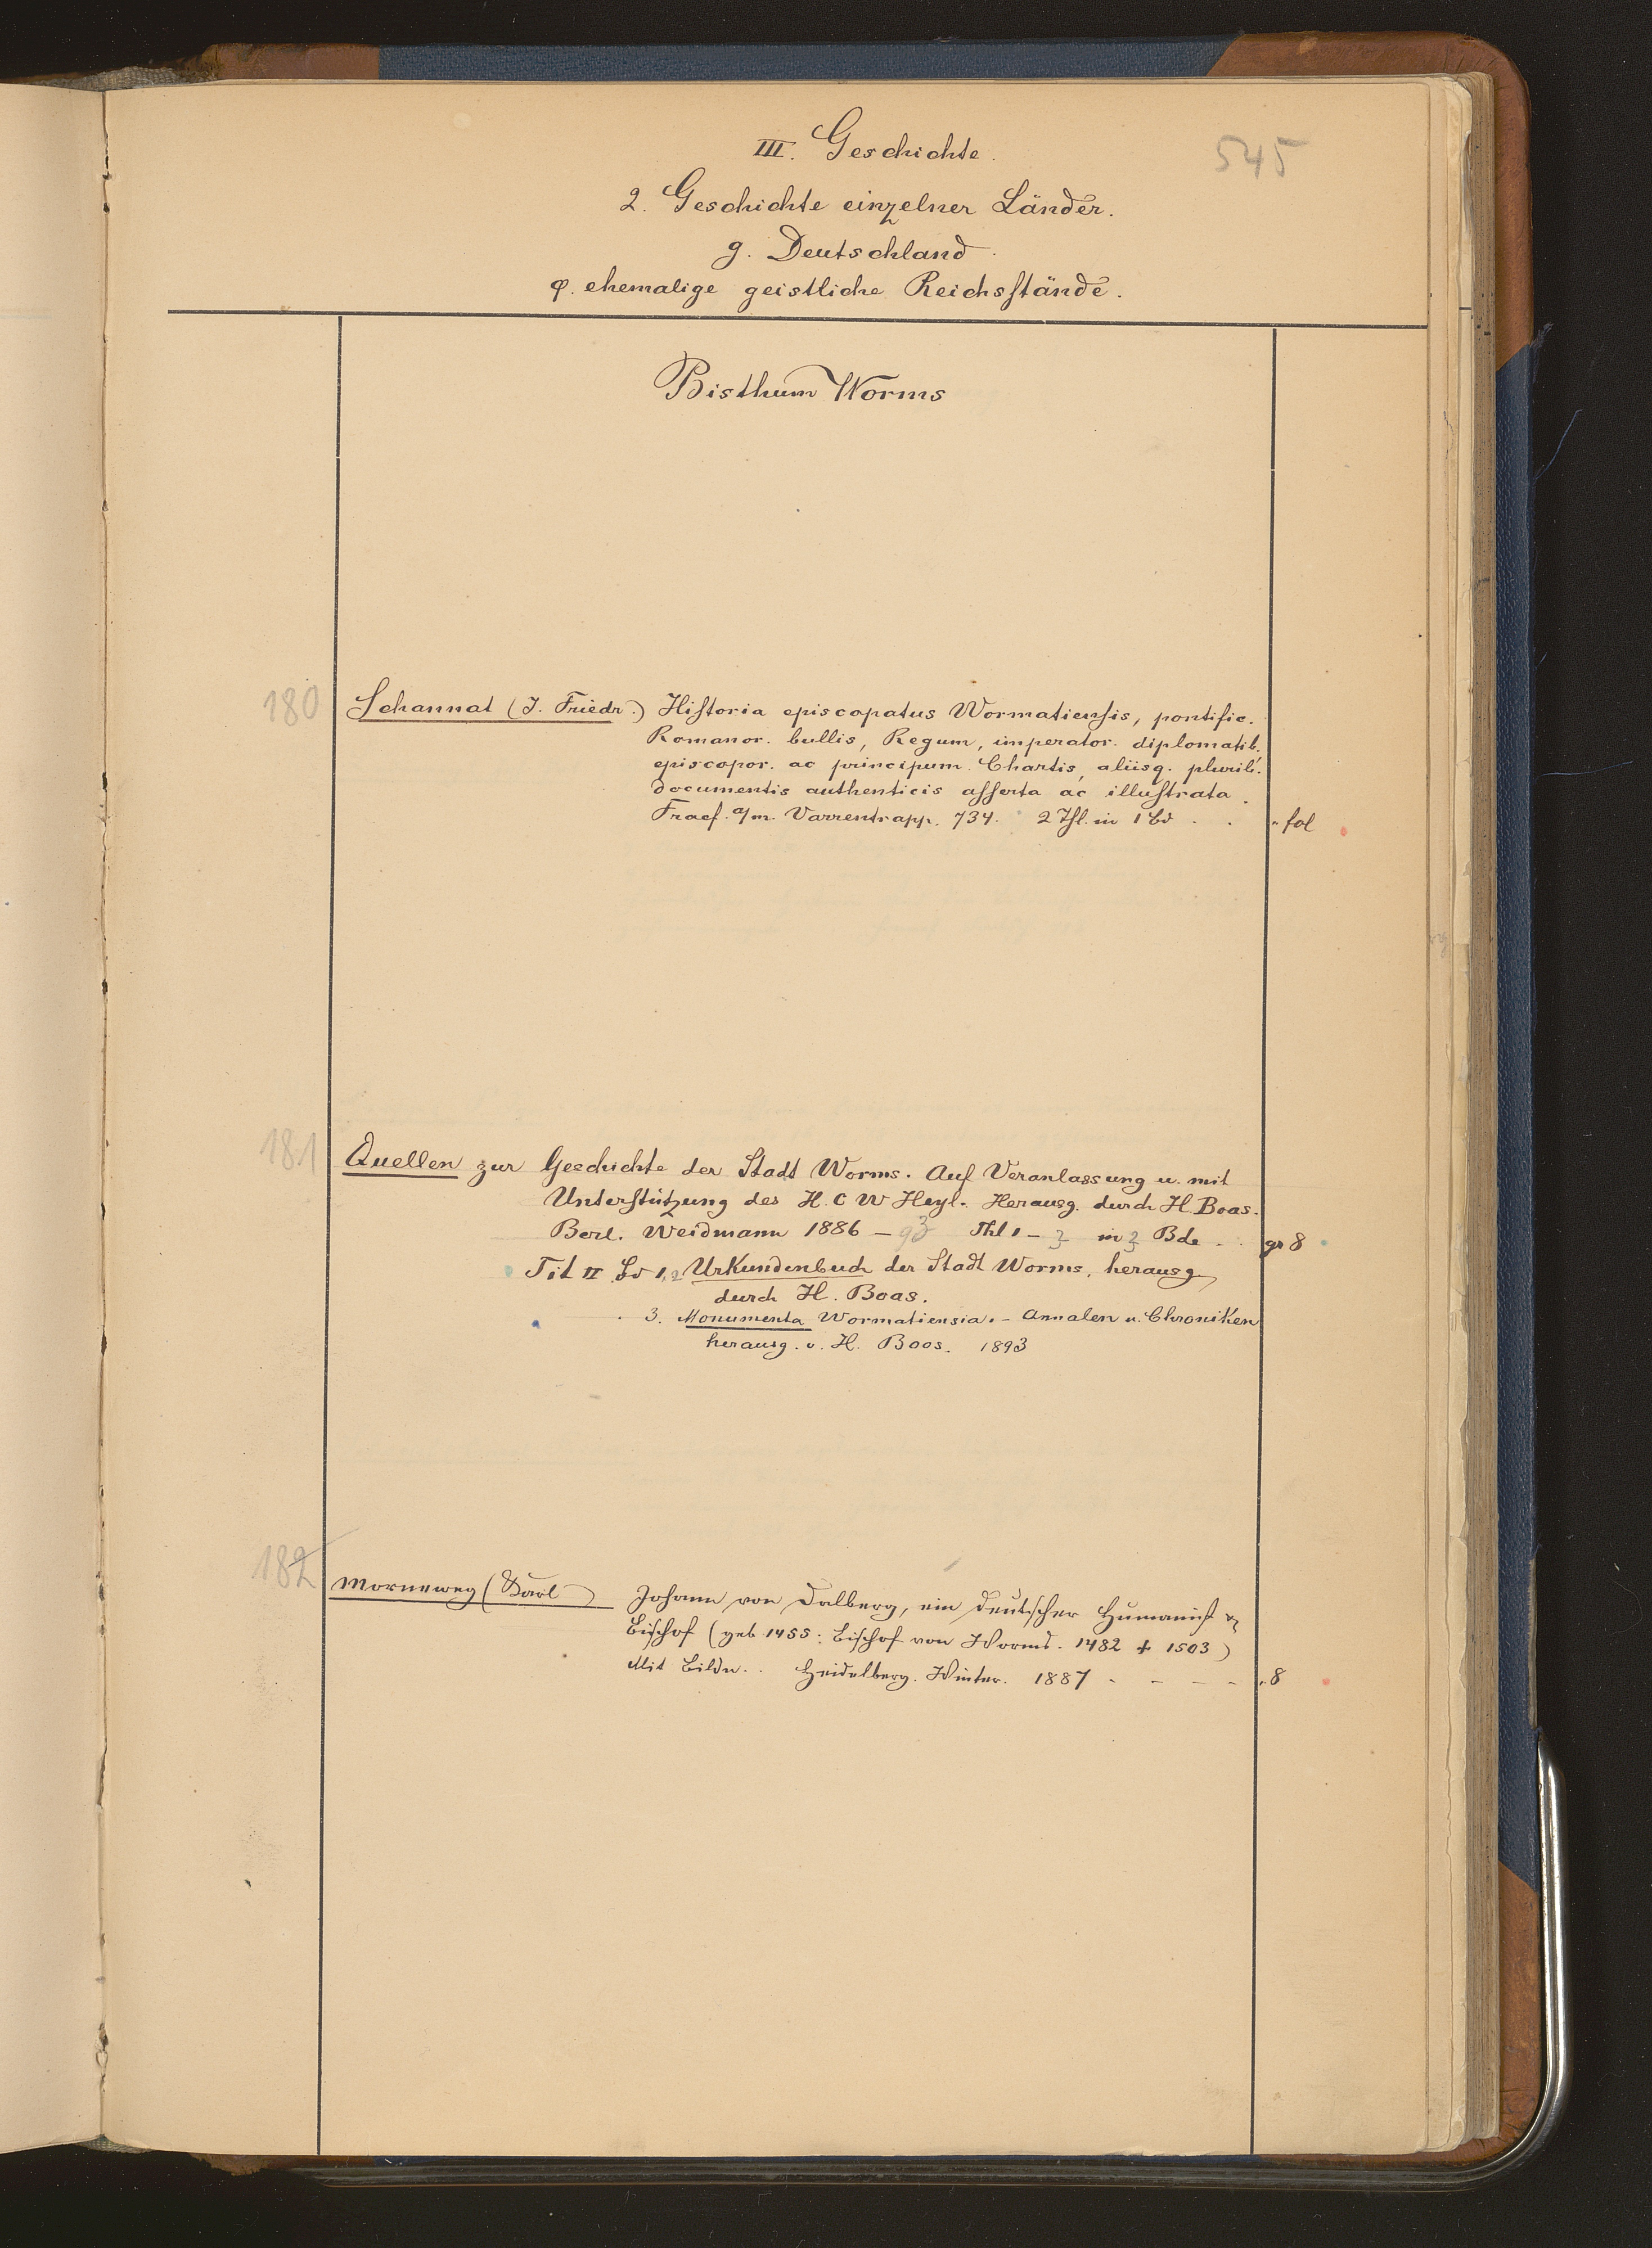 545
III. Geschichte.
2. Geschichte einzelner Länder.
g. Deutschland.
φ. ehemalige geistliche Reichsstände.
Bisthum Worms
180
Schannat (J. Friedr.) Historia episcopatus Wormatiensis, pontific.
Romanor. bullis, Regum, imperator. diplomatib.
episcopor. ac principum. Chartis, aliisq. plurib.
documentis authenticis asserta ac illustrata.
Fracf. a/m. Varrentrapp. 734. 2 Thl. in 1 Bd . . " fol
181
Quellen zur Geschichte der Stadt Worms. Auf Veranlassung u. mit
Unterstützung des H. C W Heyl. Herausg. durch H. Boas.
Berl. Weidmann 1886 – 93 Thl 1 – 3 in 3 Bde . . gr 8
Tit II Bd 1,2 Urkundenbuch der Stadt Worms, herausg
durch H. Boas.
3. Monumenta Wormatiensia. – Annalen u. Chroniken
herausg. v. H. Boos. 1893
182
Morneweg (Karl) Johann von Dalberg, ein deutscher Humanist u
Bischof (geb 1455: Bischof von Worms. 1482 + 1503)
Mit Bildn. . Heidelberg. Winter. 1887 - - - - " 8